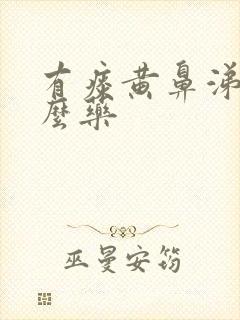 有痰黄鼻涕
麼藥
巫曼安筠